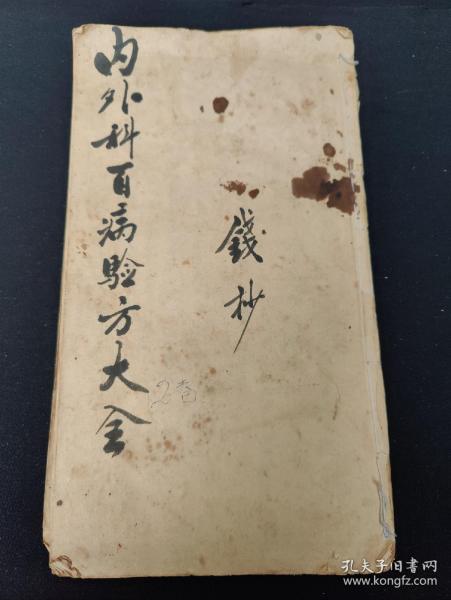 内外科百病验方大全
錢抄
2卷
孔夫子旧书网
www.kongfz.com